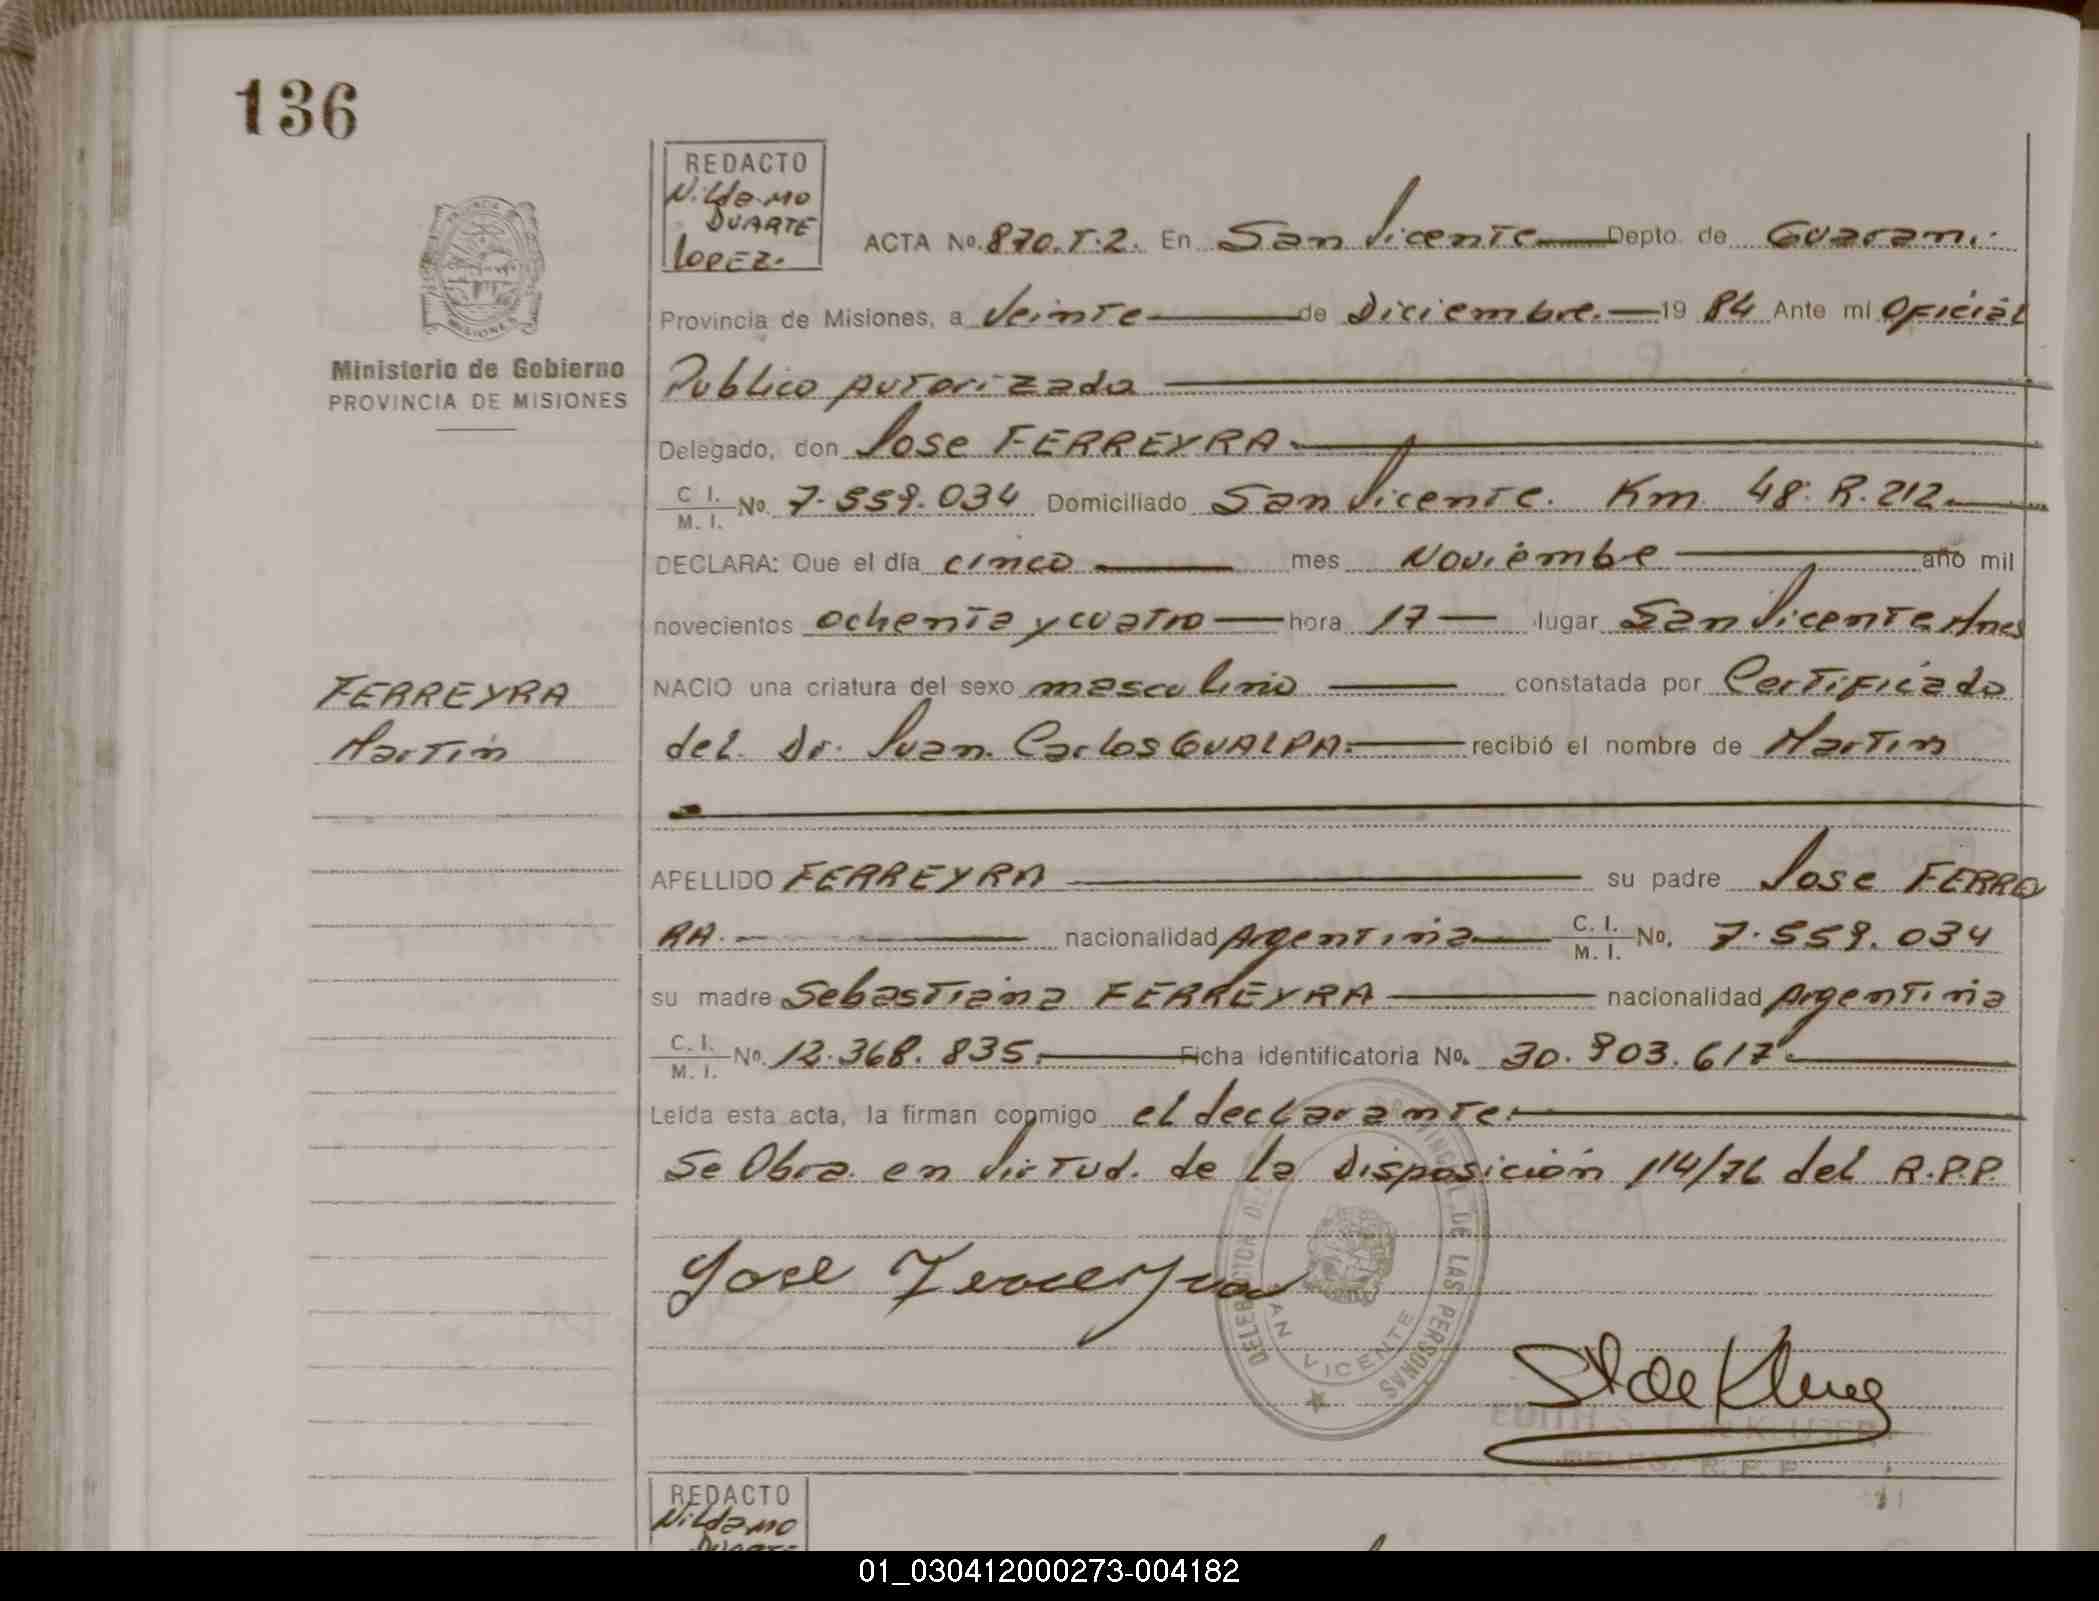 136
REDACTO
Nildamo
DUARTE
LOPEZ.
ACTA No. 870.T.2. En San Vicente Depto. de Guarani.
Provincia de Misiones, a Veinte de Diciembre. 19 84 Ante mi Oficial
Publico Autorizado
Ministerio de Gobierno
PROVINCIA DE MISIONES
Delegado, don Jose FERREYRA
C. I. / M. I. No. 7.559.034 Domiciliado San Vicente. Km 48. R.212.
DECLARA: Que el día cinco mes Noviembe año mil
novecientos ochenta y cuatro hora 17 lugar San Vicente Mnes
FERREYRA
Martin
NACIO una criatura del sexo masculino constatada por Certificado
del. Dr. Juan. Carlos GUALPA. recibió el nombre de Martin
APELLIDO FERREYRA su padre Jose FERRE
RA. nacionalidad Argentina C. I. / M. I. No. 7.559.034
su madre Sebastiana FERREYRA nacionalidad Argentina
C. I. / M. I. No. 12.368.835. Ficha identificatoria No. 30.903.617.
Leída esta acta, la firman conmigo el declarante.
Se Obra. en Virtud. de la Disposición 114/76 del R.P.P.
Jose Ferreyra
SAN VICENTE
DE LAS PERSONAS
EDITH
R. P. P.
REDACTO
Nildamo
DUARTE
01_030412000273-004182